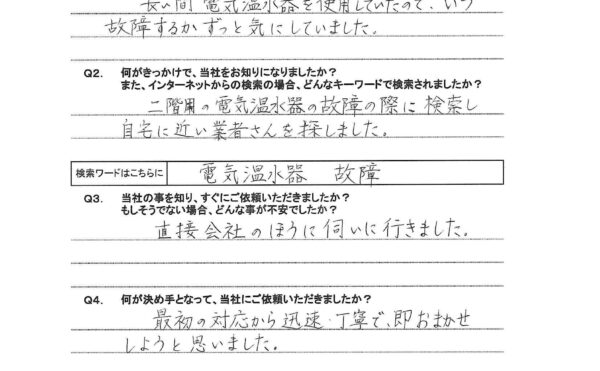 長い間 電気温水器を使用していたので、いつ
故障するかずっと気にしていました。
Q2. 何がきっかけで、当社をお知りになりましたか？
また、インターネットからの検索の場合、どんなキーワードで検索されましたか？
二階用の電気温水器の故障の際に検索し
自宅に近い業者さんを探しました。
検索ワードはこちらに 電気温水器 故障
Q3. 当社の事を知り、すぐにご依頼いただきましたか？
もしそうでない場合、どんな事が不安でしたか？
直接会社のほうに伺いに行きました。
Q4. 何が決め手となって、当社にご依頼いただきましたか？
最初の対応から迅速・丁寧で、即おまかせ
しようと思いました。